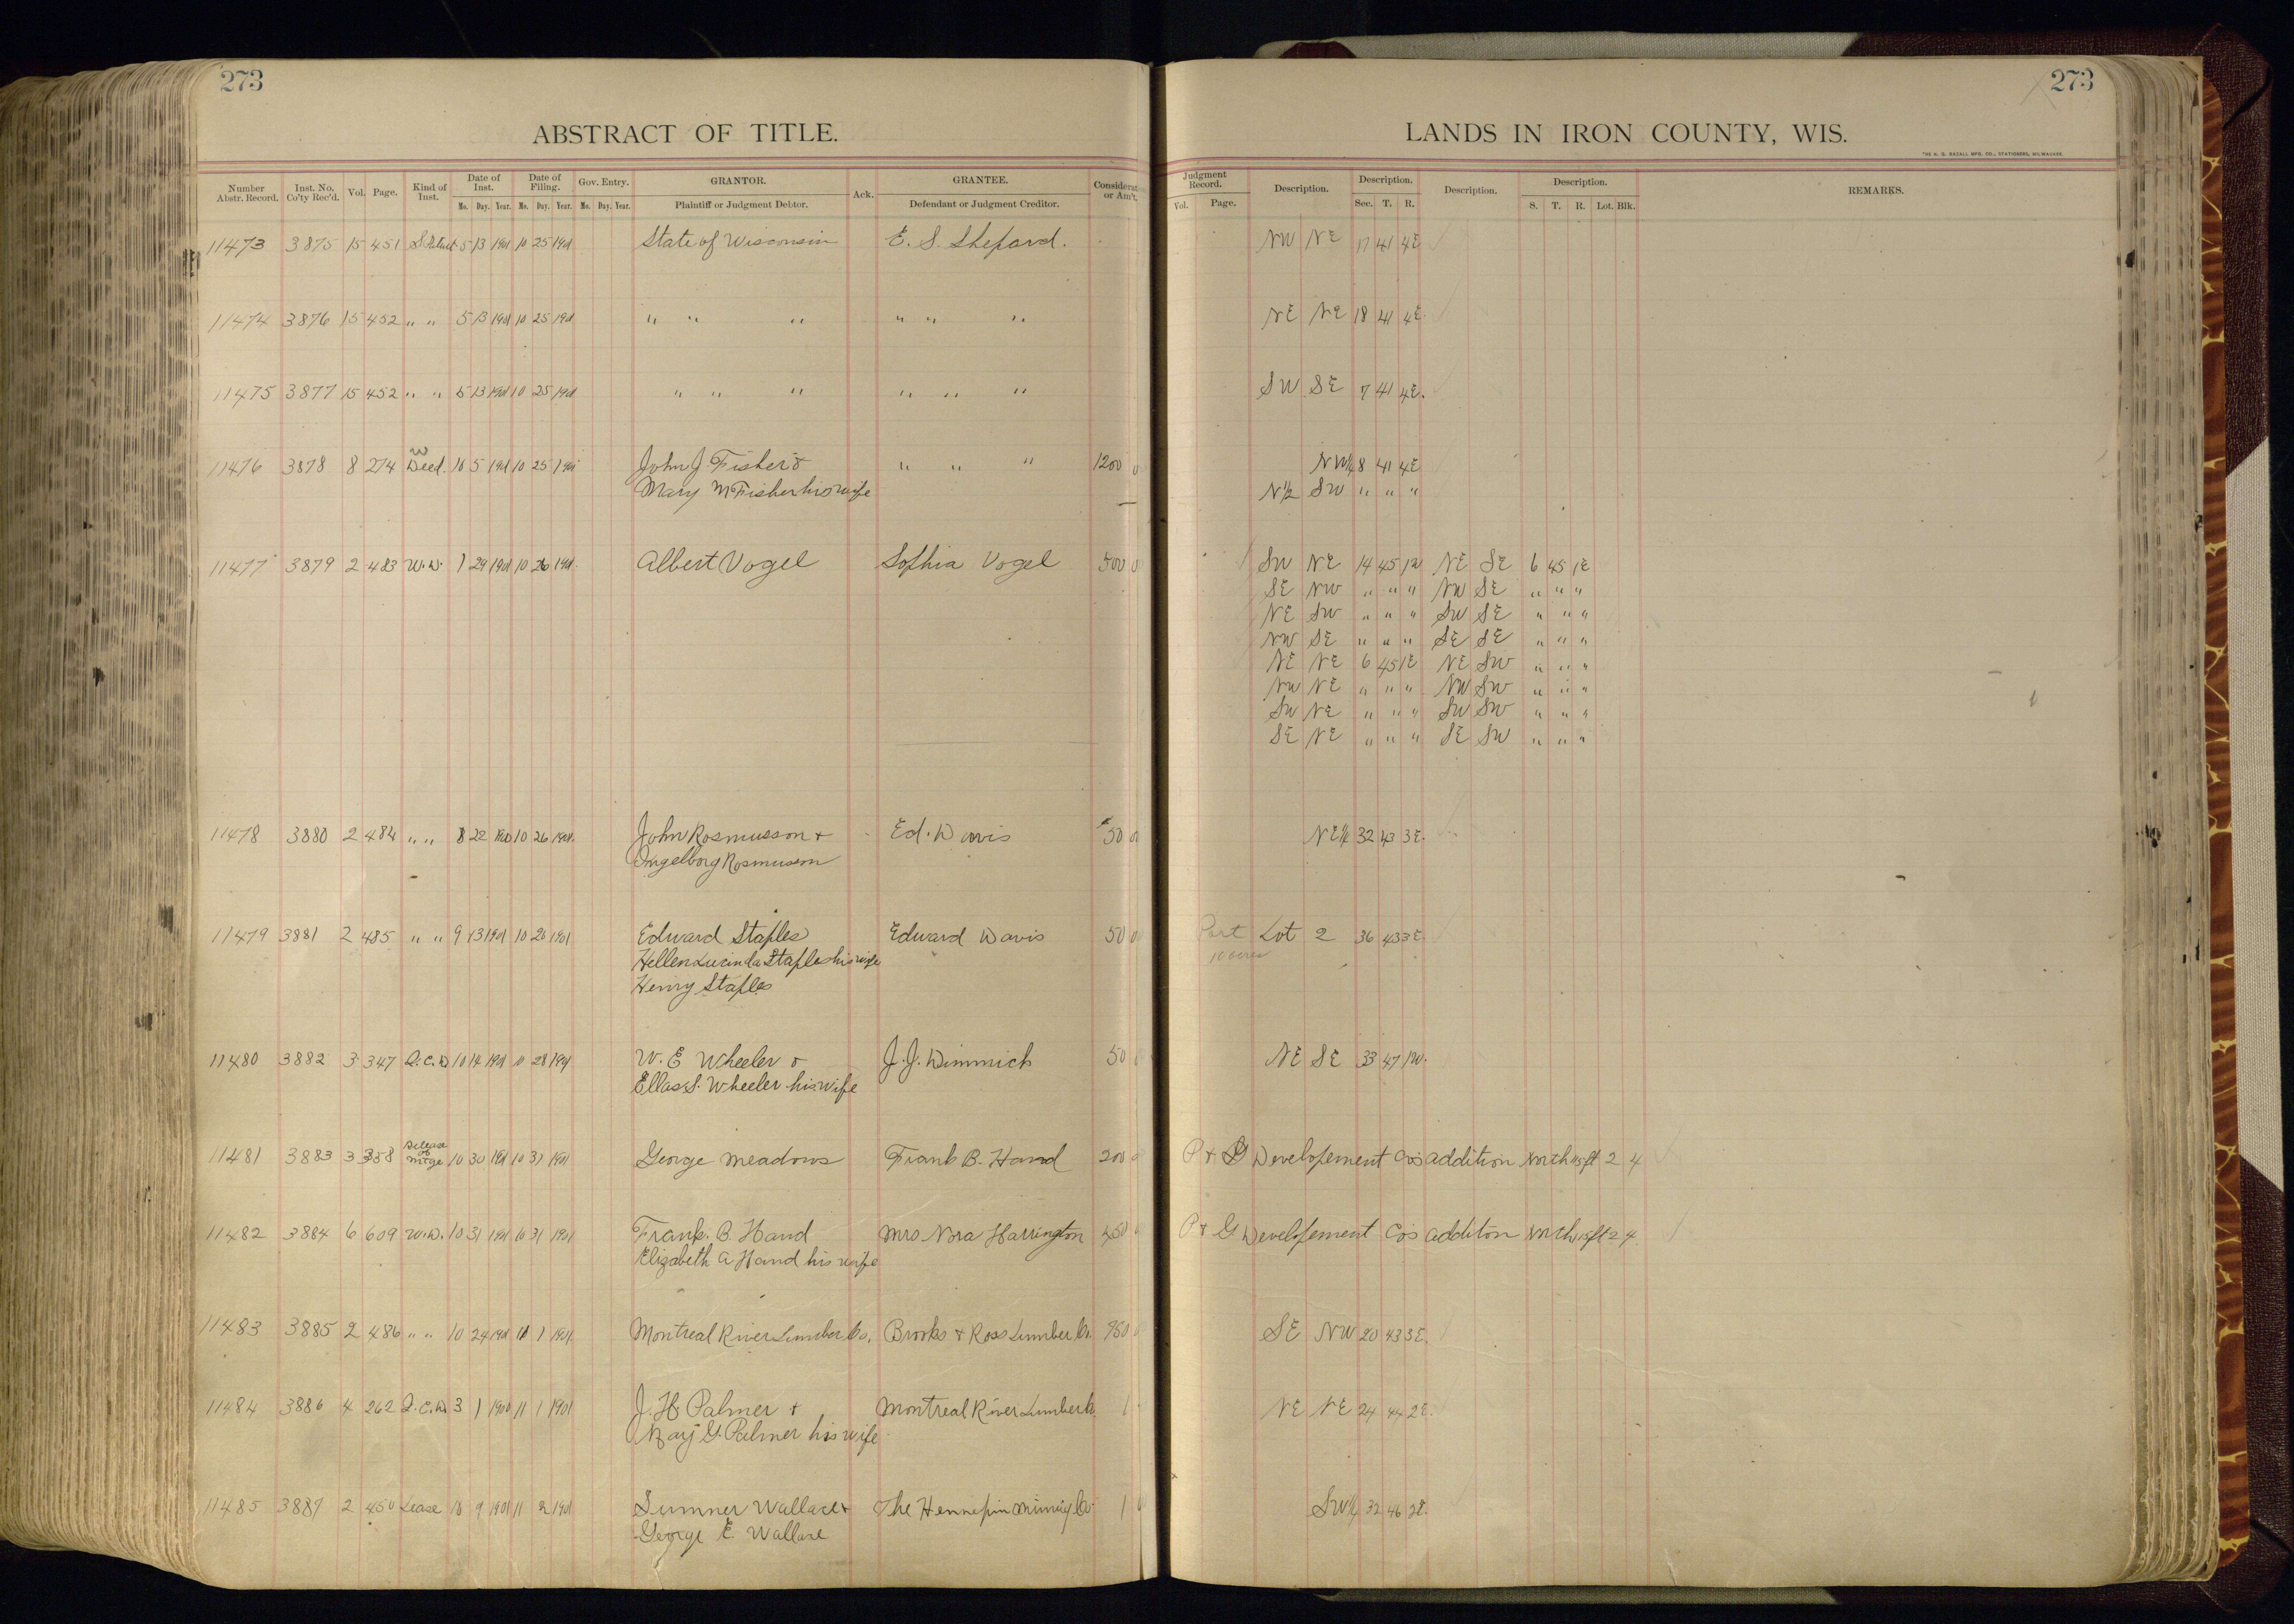 273
273
ABSTRACT OF TITLE.
LANDS IN IRON COUNTY, WIS.
THE H. G. RAZALL MFG. CO., STATIONERS, MILWAUKEE.
Number Abstr. Record. Inst. No. Co'ty Rec'd. Vol. Page. Kind of Inst. Date of Inst. Mo. Day. Year. Date of Filing. Mo. Day. Year. Gov. Entry. Mo. Day. Year. GRANTOR. Plaintiff or Judgment Debtor. Ack. GRANTEE. Defendant or Judgment Creditor. Considerat or Am't. Judgment Record. Vol. Page. Description. Description. Sec. T. R. Description. Description. S. T. R. Lot. Blk. REMARKS.
11473 3875 15 451 5 13 1901 10 25 1901 State of Wisconsin E. S. Shepard. NW NE 17 41 4E
11474 3876 15 452 " " 5 13 1901 10 25 1901 " " " " " " NE NE 18 41 4E.
11475 3877 15 452 " " 5 13 1901 10 25 1901 " " " " " " SW SE 7 41 4E.
11476 3878 8 274 W Deed. 10 5 1901 10 25 1901 John J. Fisher & " " " 1200 NW¼ 8 41 4E
Mary M Fisher his wife N½ SW " " "
11477 3879 2 483 W.D. 1 29 1901 10 26 1901. Albert Vogel Sophia Vogel 500 SW NE 14 45 1W NE SE 6 45 1E
SE NW " " " NW SE " " "
NE SW " " " SW SE " " "
NW SE " " " SE SE " " "
NE NE 6 45 1E NE SW " " "
NW NE " " " NW SW " " "
SW NE " " " SW SW " " "
SE NE " " " SE SW " " "
11478 3880 2 484 " " 8 22 10 26 1901. John Rosmusson + Ed. Davis 50 NE¼ 32 43 3E.
Ingelborg Rosmusson
11479 3881 2 485 " " 9 13 1901 10 26 1901 Edward Staples Edward Davis 50 Part Lot 2 36 43 3E.
Hellen Lucinda Staples his wife 10 acres
Henry Staples
11480 3882 3 347 Q.C.D 10 14 1901 10 28 1901 W. E Wheeler & J. J. Dimmich 50 NE SE 33 47 1W.
Ellas S. Wheeler his wife
11481 3883 3 358 Release of Mtge 10 30 1901 10 31 1901 George Meadows Frank B. Hand 200 P + G Developement Co's addition North ft 2 4
11482 3884 6 609 W.D. 10 31 1901 10 31 1901 Frank. B. Hand Mrs Nora Harrington 450 P + G Developement Co's additon North ft 2 4
Elizabeth A Hand his wife
11483 3885 2 486 " " 10 24 1901 11 1 1901 Montreal River Lumber Co. Brooks + Ross Lumber Co. 950 SE NW 20 43 3E.
11484 3886 4 262 Q.C.D. 3 1 1900 11 1 1901 J. H. Palmer + Montreal River Lumber Co. 1 NE NE 24 44 2E.
May G. Palmer his wife
11485 3887 2 450 Lease 10 9 1901 11 2 1901 Sumner Wallace + The Hennepin Mining Co. 1 SW¼ 32 46 2E.
George E. Wallace